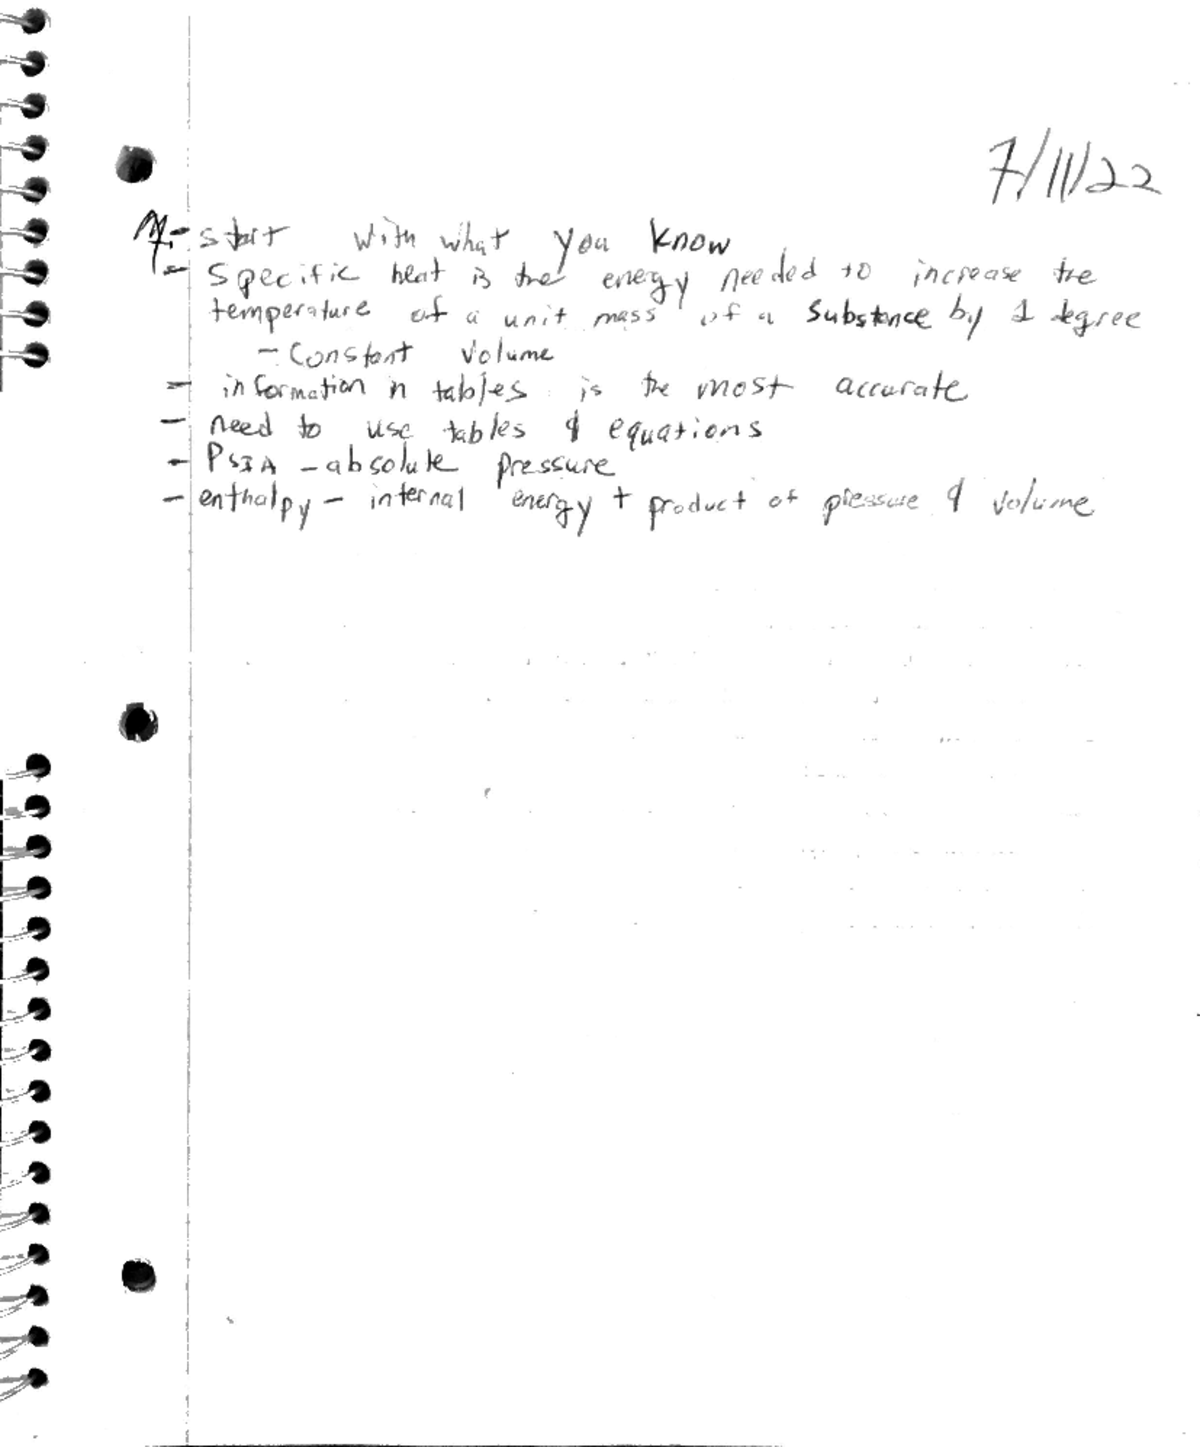 7/11/22
- start with what you know
- Specific heat is the energy needed to increase the
temperature of a unit mass of a Substance by 1 degree
- Constant Volume
- information in tables is the most accurate
- need to use tables & equations
- PSIA - absolute pressure
- enthalpy - internal energy + product of pressure & volume